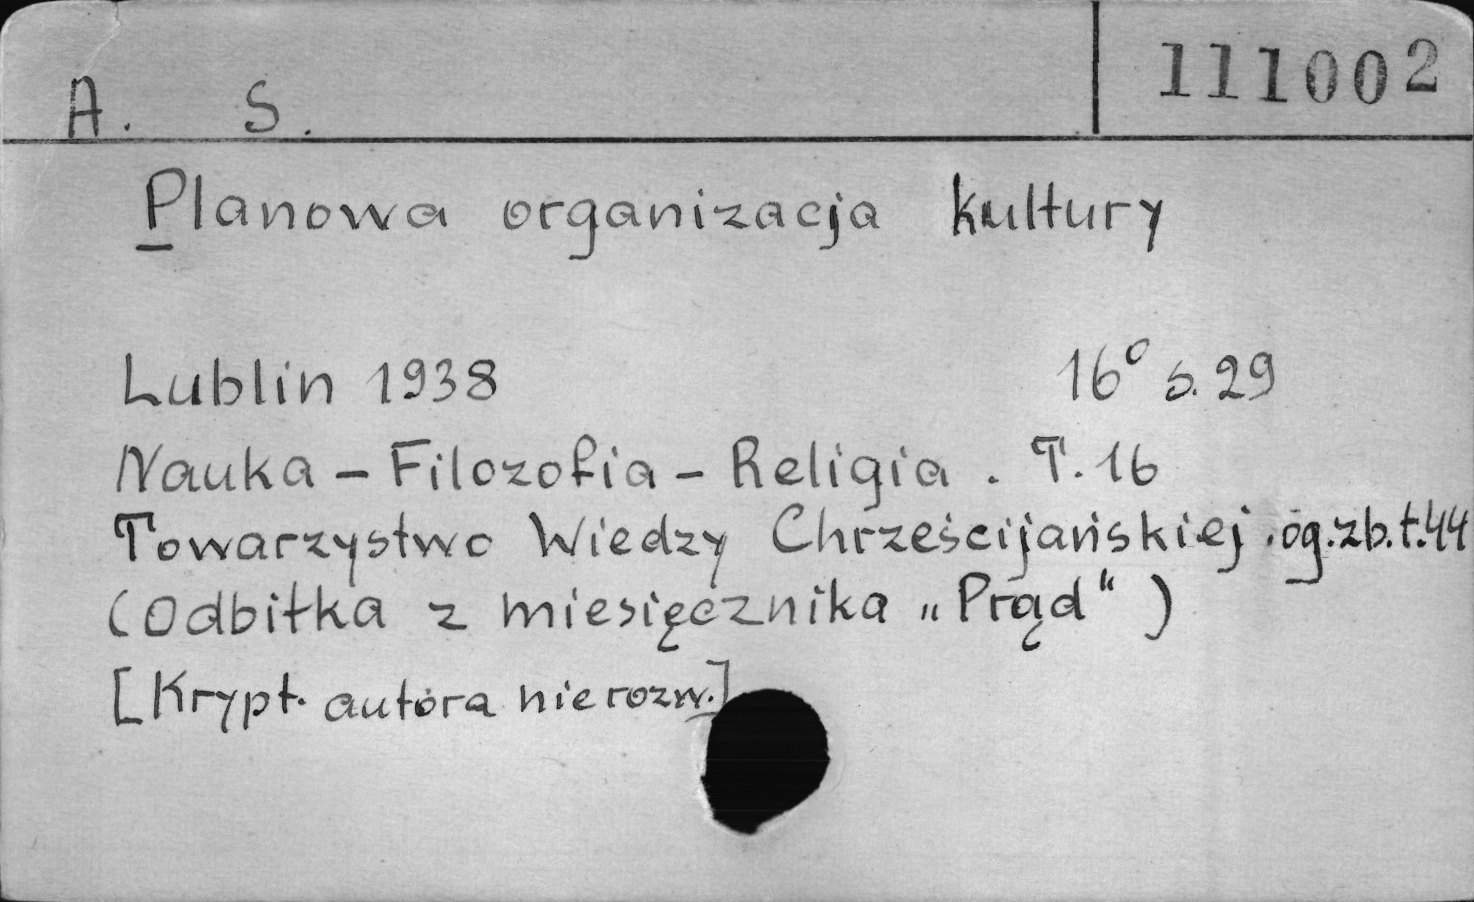 111002
A. S.
Planowa organizacja kultury
Lublin 1938 16° s. 29
Nauka – Filozofia – Religia . T. 16
Towarzystwo Wiedzy Chrześcijańskiej . óg. zb. t. 44
(Odbitka z miesięcznika „Prąd“ )
[Krypt. autora nierozw.]